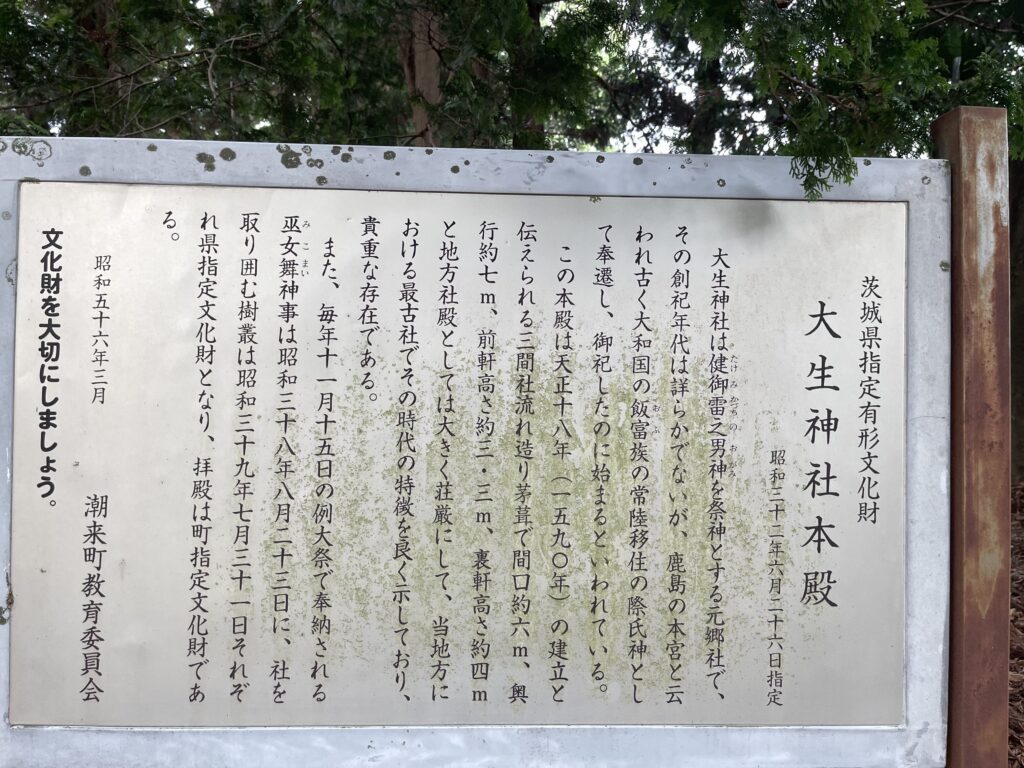 茨城県指定有形文化財
大生神社本殿
昭和三十二年六月二十六日指定
大生神社は健御雷之男神を祭神とする元郷社で、
その創祀年代は詳らかでないが、鹿島の本宮と云
われ古く大和国の飯富族の常陸移住の際氏神とし
て奉遷し、御祀したのに始まるといわれている。
この本殿は天正十八年（一五九〇年）の建立と
伝えられる三間社流れ造り茅葺で間口約六m、奥
行約七m、前軒高さ約三・三m、裏軒高さ約四m
と地方社殿としては大きく荘厳にして、当地方に
おける最古社でその時代の特徴を良く示しており、
貴重な存在である。
また、毎年十一月十五日の例大祭で奉納される
巫女舞神事は昭和三十八年八月二十三日に、社を
取り囲む樹叢は昭和三十九年七月三十一日それぞ
れ県指定文化財となり、拝殿は町指定文化財であ
る。
昭和五十六年三月
潮来町教育委員会
文化財を大切にしましょう。